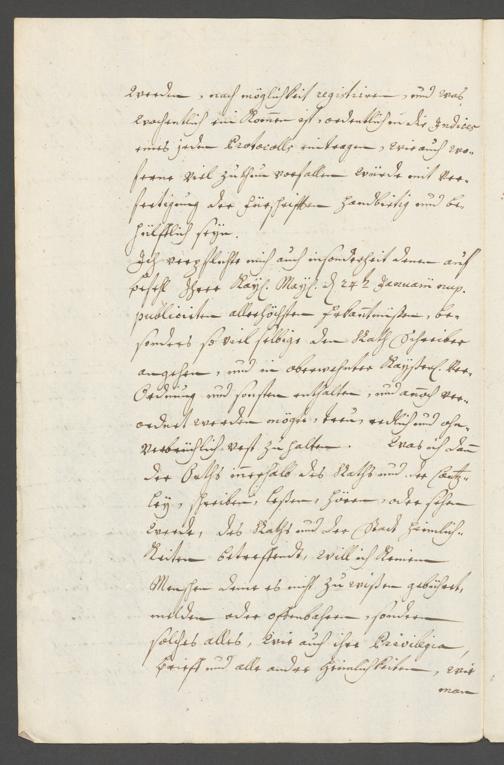 werden, nach möglichkeit registriren, und was
wochentlich ein kommen ist, ordentlich in die Indices
eines jeden Protocolls eintragen, wie auch wo-
ferne viel zu thun vorfallen würde mit Ver-
fertigung der Furschrifften handbietig und be-
hülfflich seyn.
Ich verpflichte mich auch insonderheit denen auf
befehl Ihrer Kayß. Mayß. d 24 Januarii
publicirten allerhöchsten Erkäntnißen, be-
sonders so viel selbige den Rath Schreiber
angehen, und in oberwehnter Kayserl. Ver-
Ordnung und sonsten enthalten, und annoch ver-
ordnet werden mögte, treu, redlich und ohn-
verbrüchlich vest zu halten. Was ich dann
der Orths innerhalb des Raths und der Cantz-
ley, schreiben, leßen, hören, oder sehen
werde, des Raths und der Stadt Heimlich-
keiten betreffendt, will ich keinem
Menschen deme es nicht zu wißen gebühret,
melden oder offenbahren, sondern
solches alles, wie auch ihre Privilegia,
brieff und alle andre Heimlichkeiten, wie
man